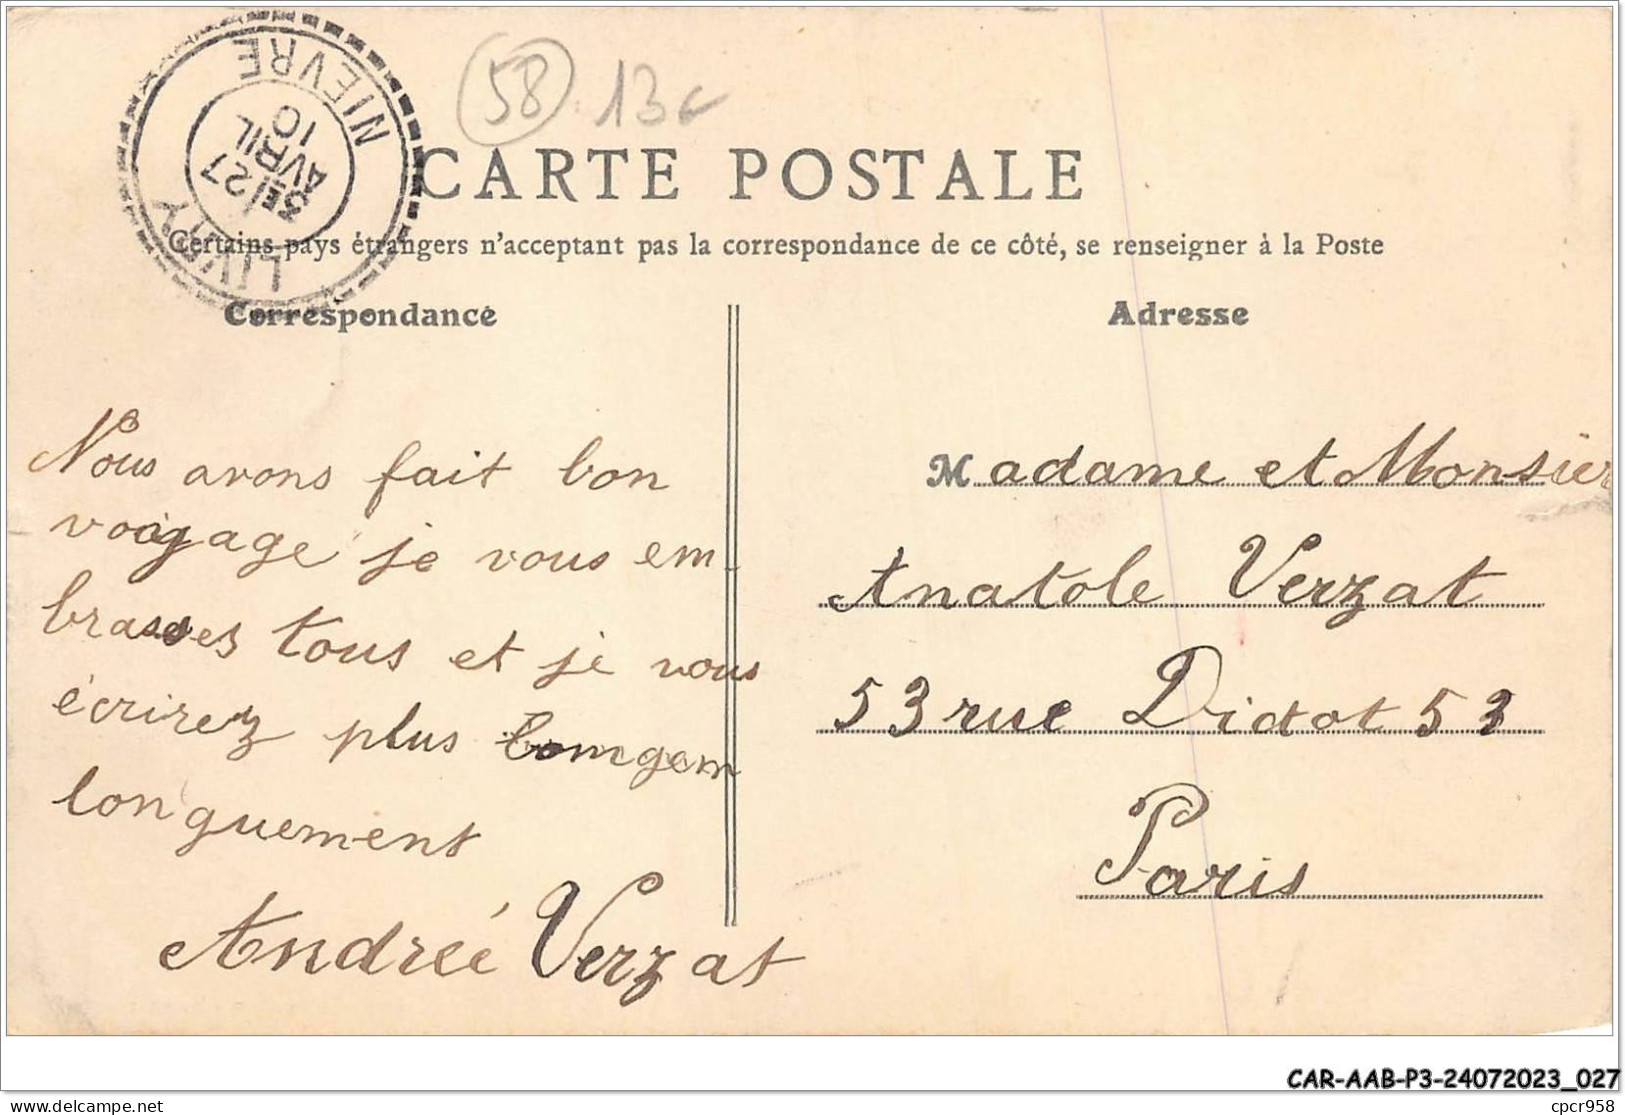 58 13c
NIEVRE
27
AVRIL
10
LIVRY
CARTE POSTALE
Certains pays étrangers n'acceptant pas la correspondance de ce côté, se renseigner à la Poste
Correspondance
Adresse
Nous avons fait bon
voyage je vous em-
brasses tous et je vous
écrirez plus longem
longuement
Andreé Verzat
Madame et Monsieur
Anatole Verzat
53 rue Didot 53
Paris
CAR-AAB-P3-24072023_027
delcampe.net
cpcr958